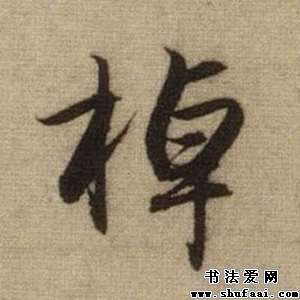 棹
书法爱网
www.shufaai.com